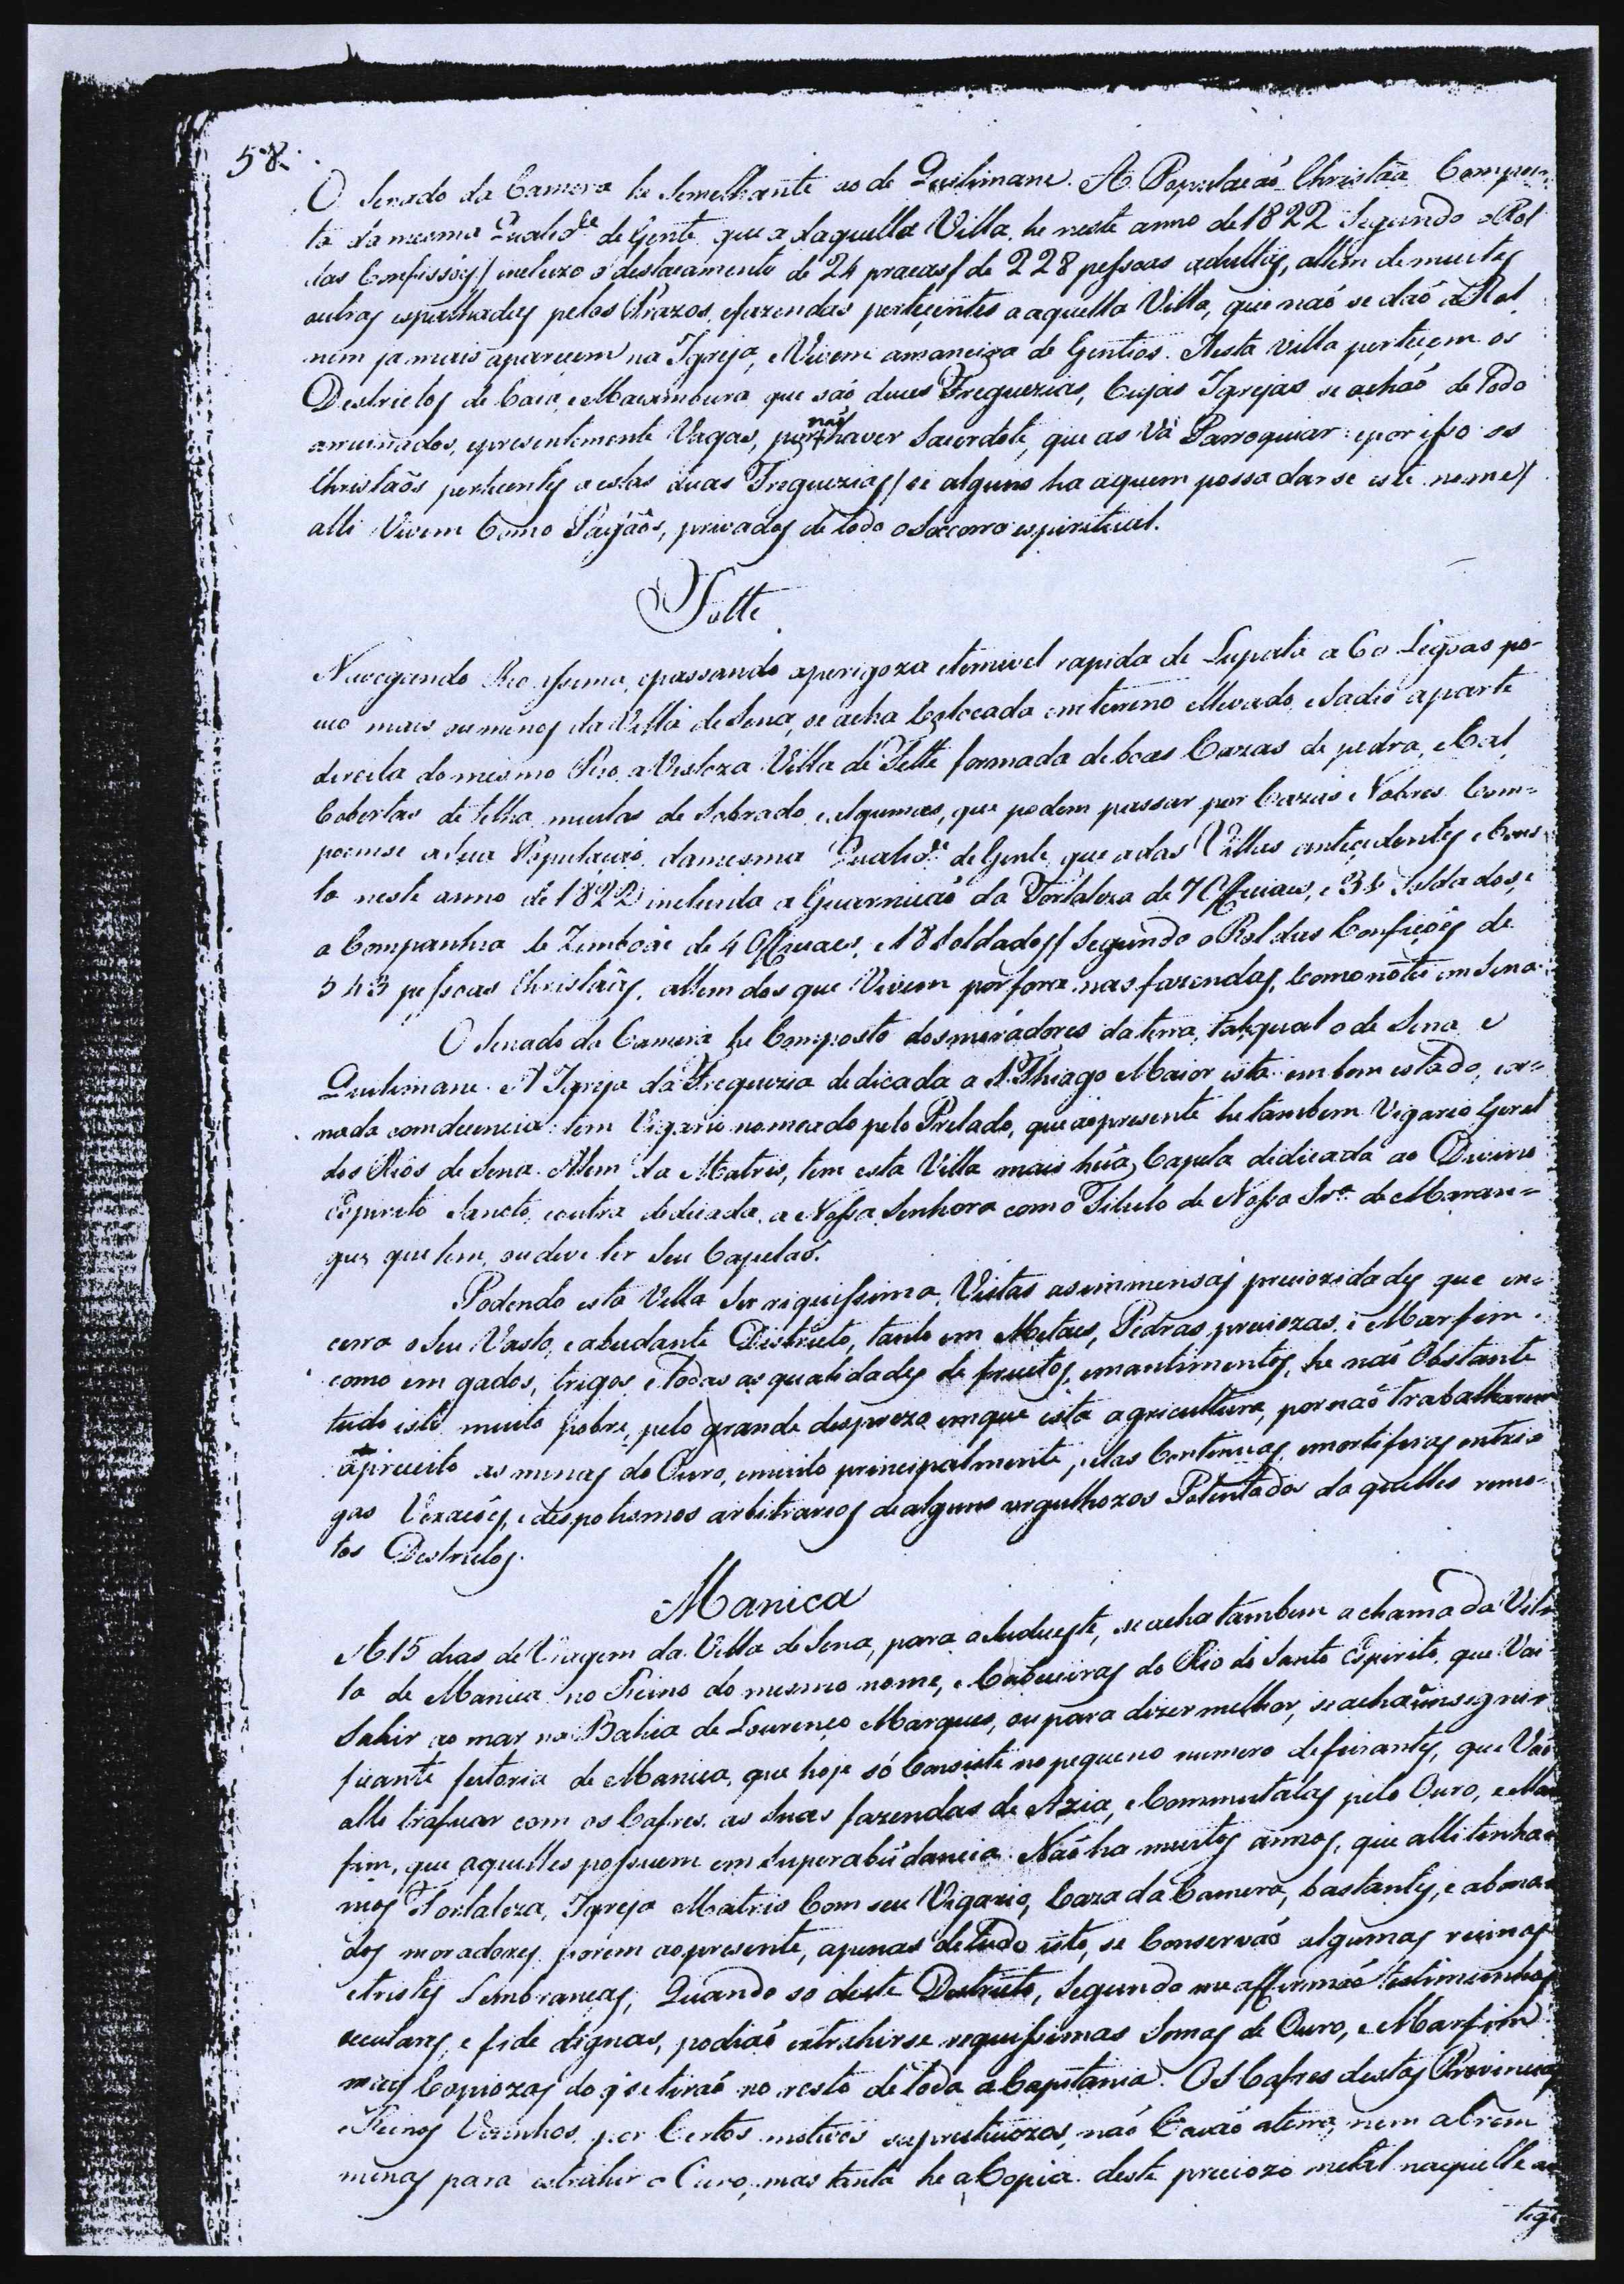 58.
O Senado da Camera he Semelhante ao de Quilimane. A Populaçaõ Christãa Compos-
ta da mesma Qualid.e de Gente que a daquella Villa he neste anno de 1822 Segundo o Rol
das Confissoẽs / incluzo o destacamento de 24 praças / de 228 pessoas adultas, allem de muitas
outras espalhadas pelos Prazos, efazendas pertencentes a aquella Villa, que naõ se daõ a Rol
nem ja mais aparecem na Igreja, e Vivem amaneira de Gentios. Aesta villa pertencem os
Destrictos de Caia, e Macambura que saõ duas Freguezias, Cujas Igrejas se achaõ de todo
arruinadas, epresentemente Vagas, por naõ haver Sacerdote, que as Vá Parroquiar: epor isso os
Christaõs pertencentes a estas duas Freguezias / se alguns ha aquem possa darse este nome /
alli Vivem Como Pagaõs, privados de todo o Socorro espiritual.
Tette
Navegando Rio assima, epassando aperigoza eterrivel rapida de Lupata a 60 Legoas po-
uco mais oumenos da Villa de Sena, se acha Colocada em terreno ellevado, eSadio aparte
direita domesmo Rio, a Vistoza Villa de Tette formada de boas Cazas de pedra, eCal
Cobertas de telha muitas de Sobrado, e algumas, que podem passar por Cazas Nobres. Com-
poemse a sua Populaçaõ damesma Qualid.e de Gente, que adas Villas antecedentes, eCons-
ta neste anno de 1822 incluida a Guarniçaõ da Fortaleza de 7 Officiaes, e 34 Soldados, e
a Companhia de Zimbõe de 4 Officiaes, e 18 Soldados / Segundo o Rol das Confiçoẽs de
543 pessoas Christaãs, allem dos que Vivem por fora nas fazendas, Como notei em Sena.
O Senado da Camera he Composto dos moradores da terra, tal qual o de Sena e
Quilimane. A Igreja da Freguezia dedicada a S. Thiago Maior está em bom estado, eor-
nada comdecencia: tem Vigario nomeado pelo Prelado, que aopresente he tambem Vigario Geral
dos Rios de Sena. Alem da Matris, tem esta Villa mais huã Capela dedicada ao Divino
Espirito Sancto, eoutra dedicada a Nossa Senhora com o Titulo de Nossa Sr.a de Maran-
gue, que tem, ou deve ter Seu Capelaõ.
Podendo esta Villa Ser riquissima, Vistas asimmensas preciozidades que en-
cerra o Seu Vasto, e abudante Destricto, tanto em Metaes, Pedras preciozas, e Marfim,
como em gados, trigos, e todas as qualidades de fructos, emantimentos, he naõ Obstante
tudo isto muito pobre, pelo grande desprezo emque está agricultura, pornaõ trabalharem
aproveito as minas do Ouro, emuito principalmente, pelas Continuas, emortiferas entri-
gas Vexaçoẽs, e despotismos arbitrarios dealguns orgulhozos Potentados daquelles remo-
tos Destrictos.
Manica
A 15 dias de Viagem da Villa de Sena, para oSudueste, se acha tambem a chamada Vil-
la de Manica no Reino do mesmo nome, e Cabeceiras do Rio do Santo Espirito, que Vai
Sahir ao mar na Bahia de Lourenço Marques, ou para dizer melhor, se acha a insigni-
ficante feitoria de Manica, que hoje só Consiste no pequeno numero defeirantes, que Vaõ
alli traficar com os Cafres as Suas fazendas de Azia, e Commutalas pelo Ouro, e Mar
fim, que aquelles possuem em Superabũdancia. Naõ ha muitos annos, que alli tenha-
mos Fortaleza, Igreja Matris Com seu Vigario, Caza da Camera, bastantes, e abona-
dos moradores, porem aopresente, apenas detudo isto, se Conservaõ algumas ruinas
etristes Lembranças, Quando so deste Destricto, Segundo me affirmaõ testimunhas
oculares, e fide dignas, podiaõ extrahirse riquissimas Somas de Ouro, e Marfim
mais Copiozas do q' se tiraõ no resto de toda a Capitania. Os Cafres destas Provincias
e Reinos Vizinhos, por Certos motivos suprsticiozos, naõ Cavaõ aterra, nem abrem
minas para extrahir o Ouro, mas tanta he a Copia deste preciozo metal naquelle